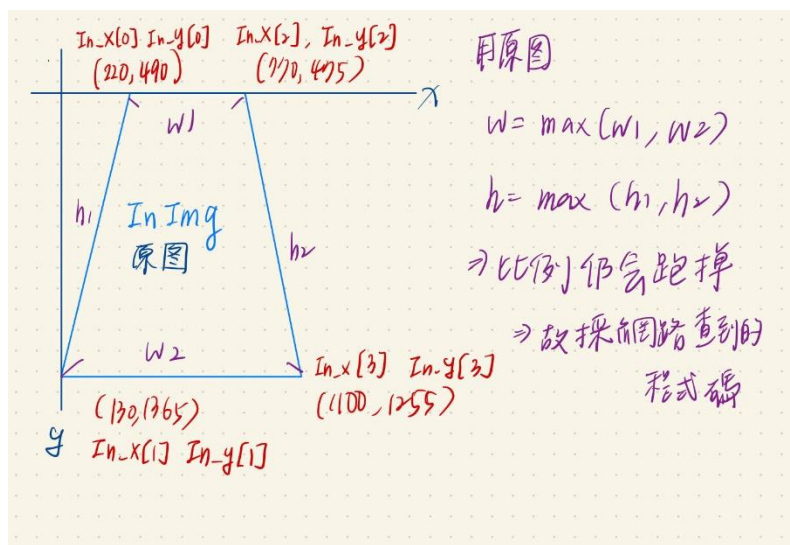 In_X[0] In_y[0]
(220,490)
In_X[2], In_y[2]
(770,475)
x
w1
h1
In Img
原图
h2
w2
In_x[3] In_y[3]
(1100,1255)
(130,1365)
y
In_X[1] In_y[1]
用原图
w= max(w1, w2)
h= max (h1, h2)
⇒比例仍会跑掉
⇒故採網路查到的
程式碼